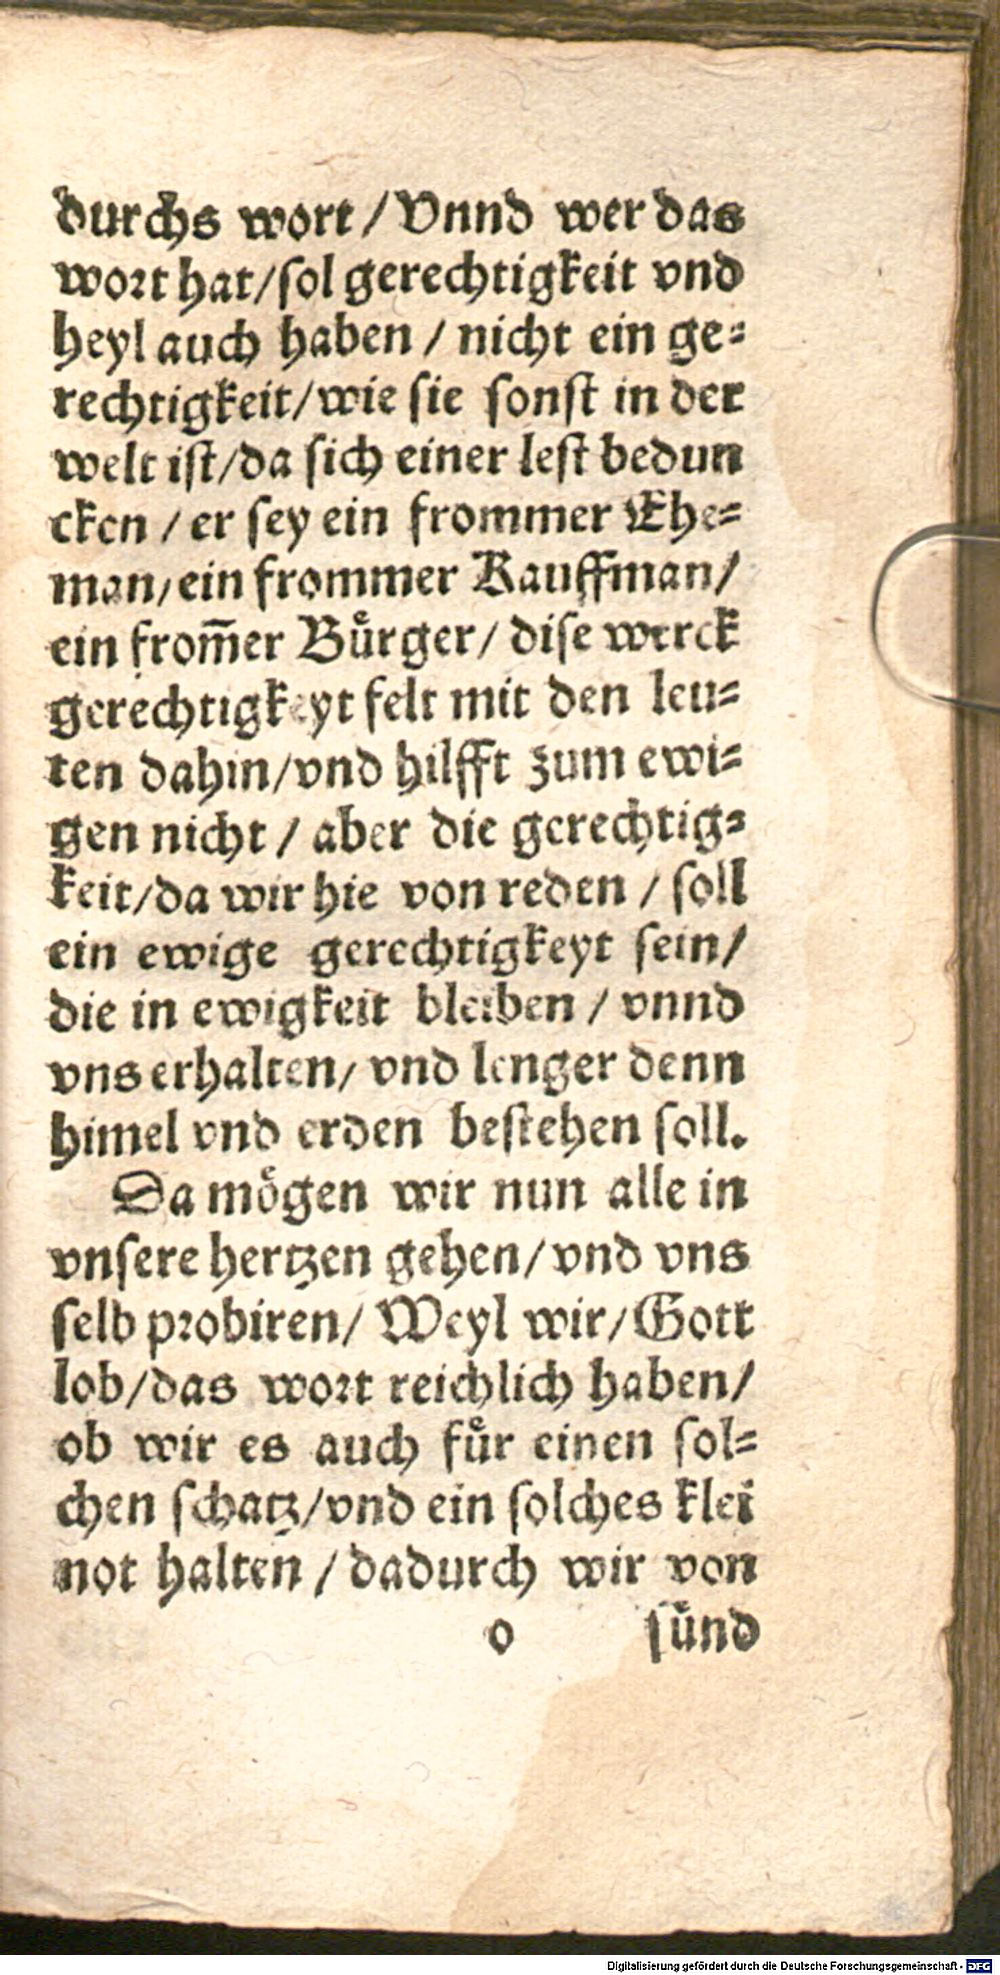 durchs wort / Vnnd wer das
wort hat / sol gerechtigkeit vnd
heyl auch haben / nicht ein ge⸗
rechtigkeit / wie sie sonst in der
welt ist / da sich einer lest bedun
cken / er sey ein frommer Ehe⸗
man / ein frommer Kauffman /
ein from̄er Bůrger / dise werck
gerechtigkeyt felt mit den leu⸗
ten dahin / vnd hilfft zum ewi⸗
gen nicht / aber die gerechtig⸗
keit / da wir hie von reden / soll
ein ewige gerechtigkeyt sein /
die in ewigkeit bleiben / vnnd
vns erhalten / vnd lenger denn
himel vnd erden bestehen soll.
Da mögen wir nun alle in
vnsere hertzen gehen / vnd vns
selb probiren / Weyl wir / Gott
lob / das wort reichlich haben /
ob wir es auch fůr einen sol⸗
chen schatz / vnd ein solches klei
not halten / dadurch wir von
o sůnd
Digitalisierung gefördert durch die Deutsche Forschungsgemeinschaft - DFG